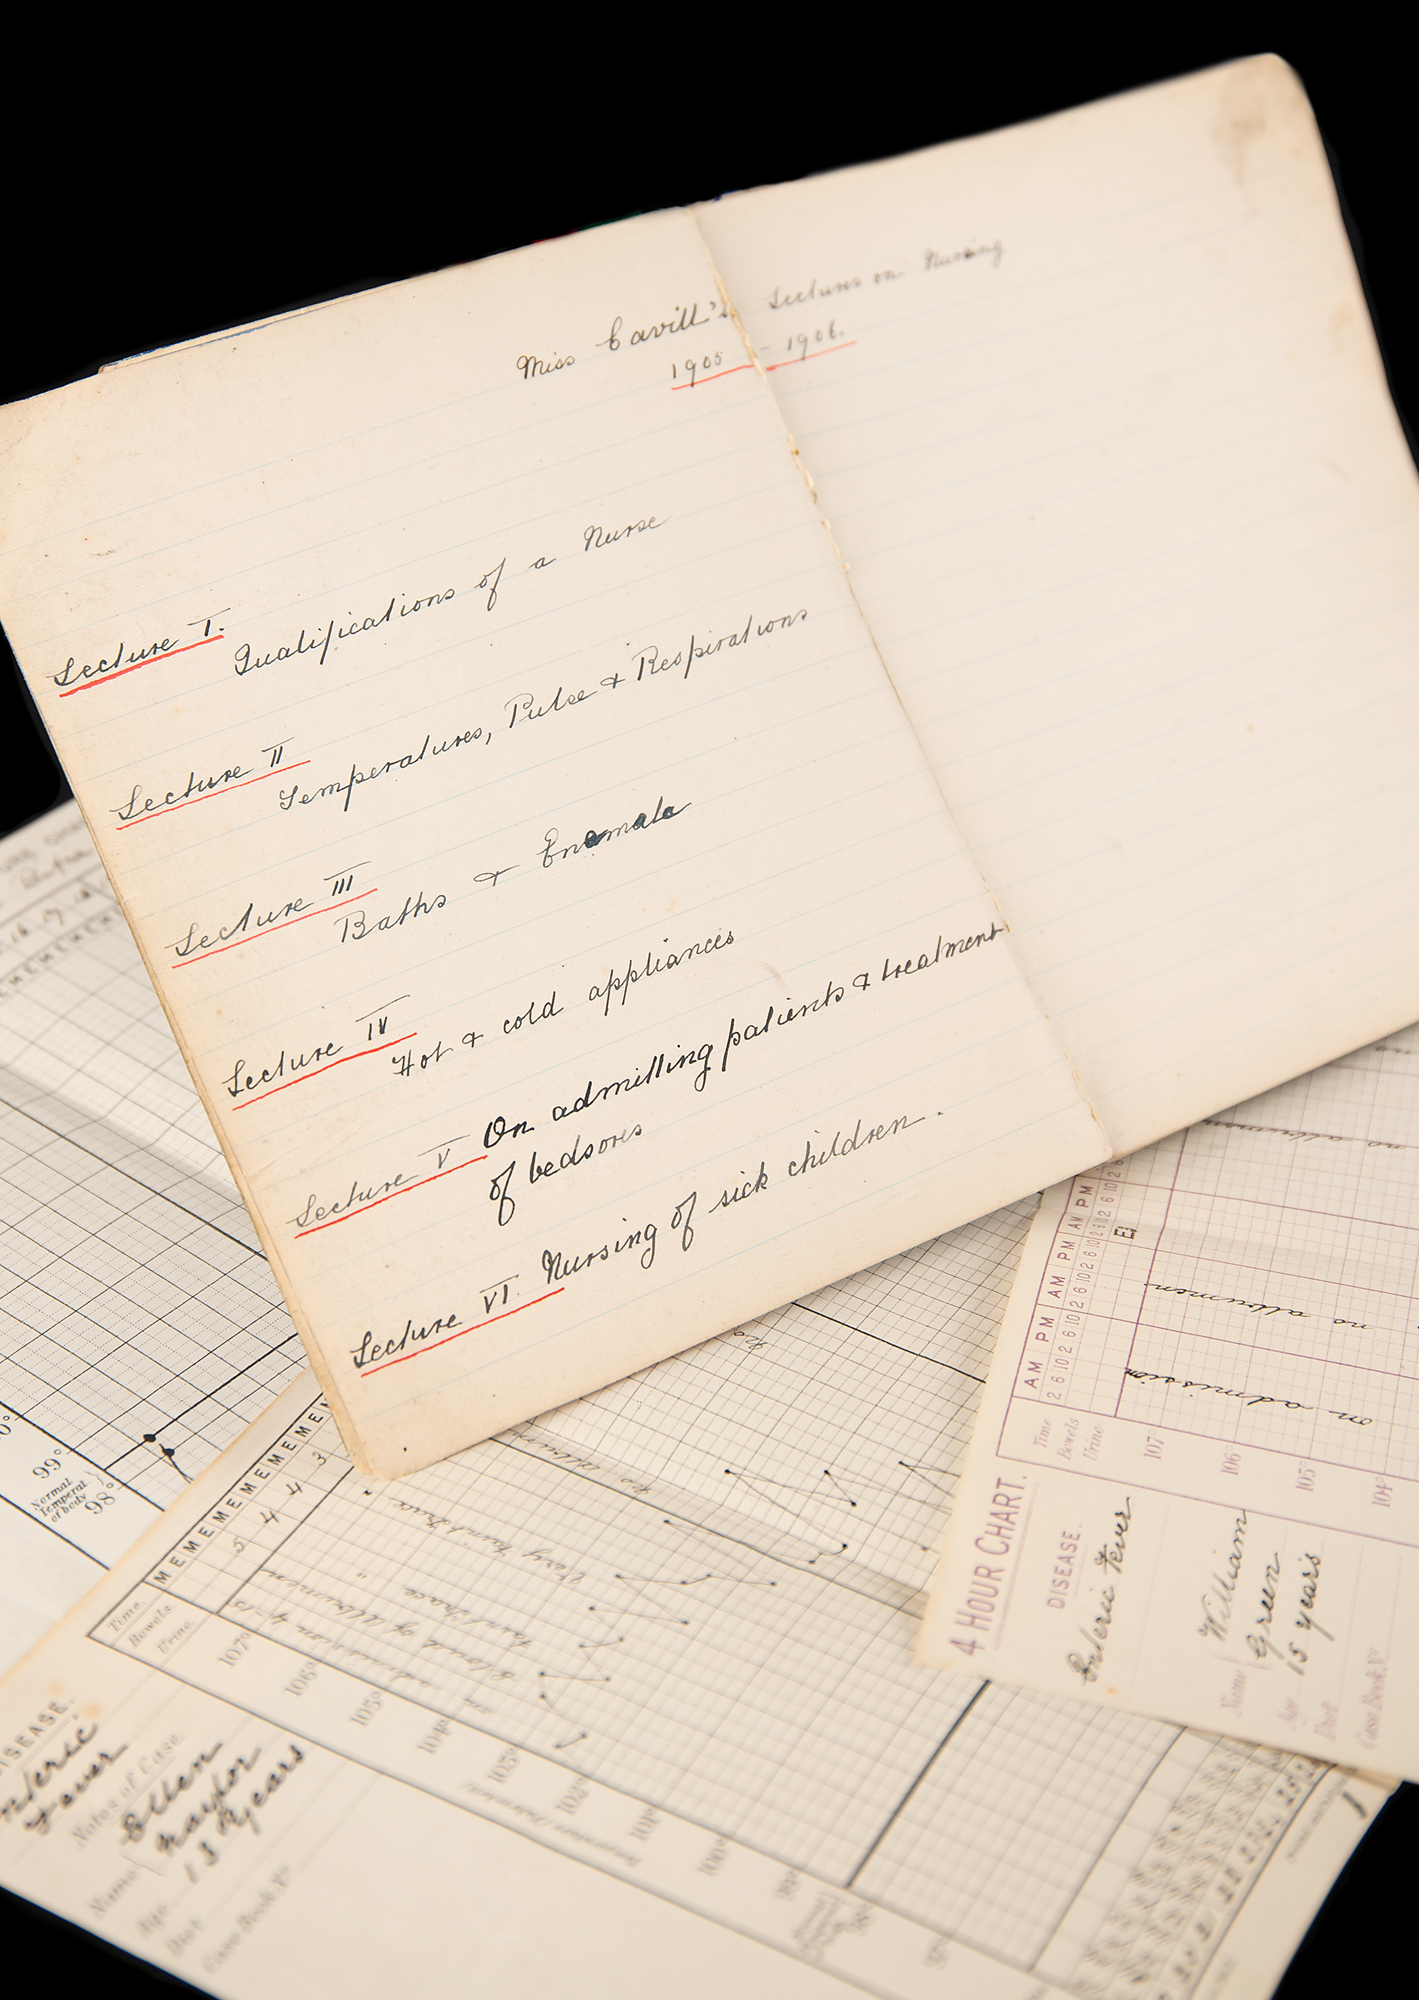 Miss Cavill's Lectures on Nursing
1905 - 1906.
Lecture I.
Qualifications of a Nurse
Lecture II
Temperatures, Pulse & Respirations
Lecture III
Baths & Enemata
Lecture IV
Hot & cold appliances
Lecture V On admitting patients & treatment
of bedsores
Lecture VI. Nursing of sick children.
99°
Normal
Temperat
of body
98°
MEMEMEMEMEMEME
5 4 4 3
Time.
Bowels.
Urine.
107°
106°
105°
104°
103°
102°
101°
100°
99°
98°
97°
on admission
Cloud of albumen
faint trace
Very faint trace
no album
no
ISEASE.
nteric
Fever
Notes of Case.
Name Ellen
Naylor
Age 13 years
Diet
Case Book No
4 HOUR CHART.
DISEASE.
Enteric Fever
Name William
Green
Age 15 years
Diet
Case Book No
AM PM AM PM AM PM
2 6 10 2 6 10 2 6 10 2 6 10 2 6 10 2 6 10 2 6
Time
Bowels
Urine
E1
107°
106°
105°
104°
on admission
no albumen
no albumen